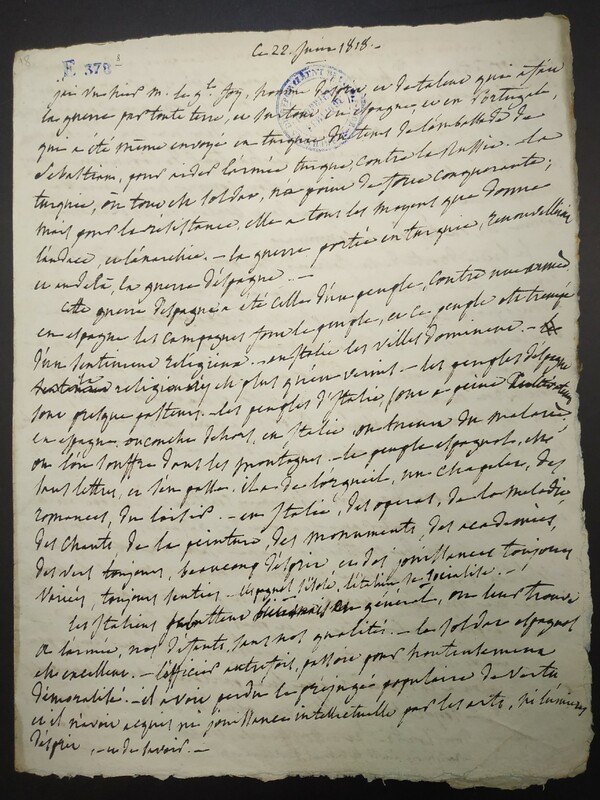 Ce 22. Juin 1818.-
E 378 8
j'ai vu hier M. le g.al foy, homme d'esprit, et de talent qui a fait
la guerre par toute terre, et surtout en espagne, et en Portugal,
qui a été même envoyé en turquie du tems de l'ambassade de
Sebastiani, pour aider l'armée turque, contre la Russie. - la
turquie, où tout est soldat, n'a point de force conquerante;
mais pour la résistance, elle a tous les moyens que donne
l'audace, et l'anarchie. - la guerre portée en turquie, renouvelleroit
et au delà, la guerre d'espagne. -
Cette guerre d'espagne a été celle d'un peuple, contre une armée.
en espagne les campagnes font le peuple, et ce peuple est trempé
d'un sentiment religieux. - en Italie les villes dominent. -
religieux est plus qu'en - les peuples d'espagne
sont presque pasteurs. - les peuples d'Italie, sont à peine
en espagne, on couche dehors, en Italie on meurt du malaria
ou l'on souffre dans les montagnes. - le peuple espagnol, est
sans lettres, et s'en passe. il a de l'orgueil, un chapelet, des
romances, du loisir. - en Italie, des operas, de la melodie
des chants, de la peinture, des monuments, des academies,
des vers toujours, beaucoup d'esprit, et des jouissances toujours
variées, toujours senties. - l'espagnol s'isole, l'italien se socialise. -
les Italiens en général, on leur trouve
à l'armée, nos défauts, sans nos qualités. - le soldat espagnol
est excellent. - l'officier autrefois, passoit pour honteusement
démoralisé. - il avoit perdu le préjugé populaire de vertu
et il n'avoit acquis ni jouissance intellectuelle par les arts, ni lumières
d'esprit, - et de savoir. -